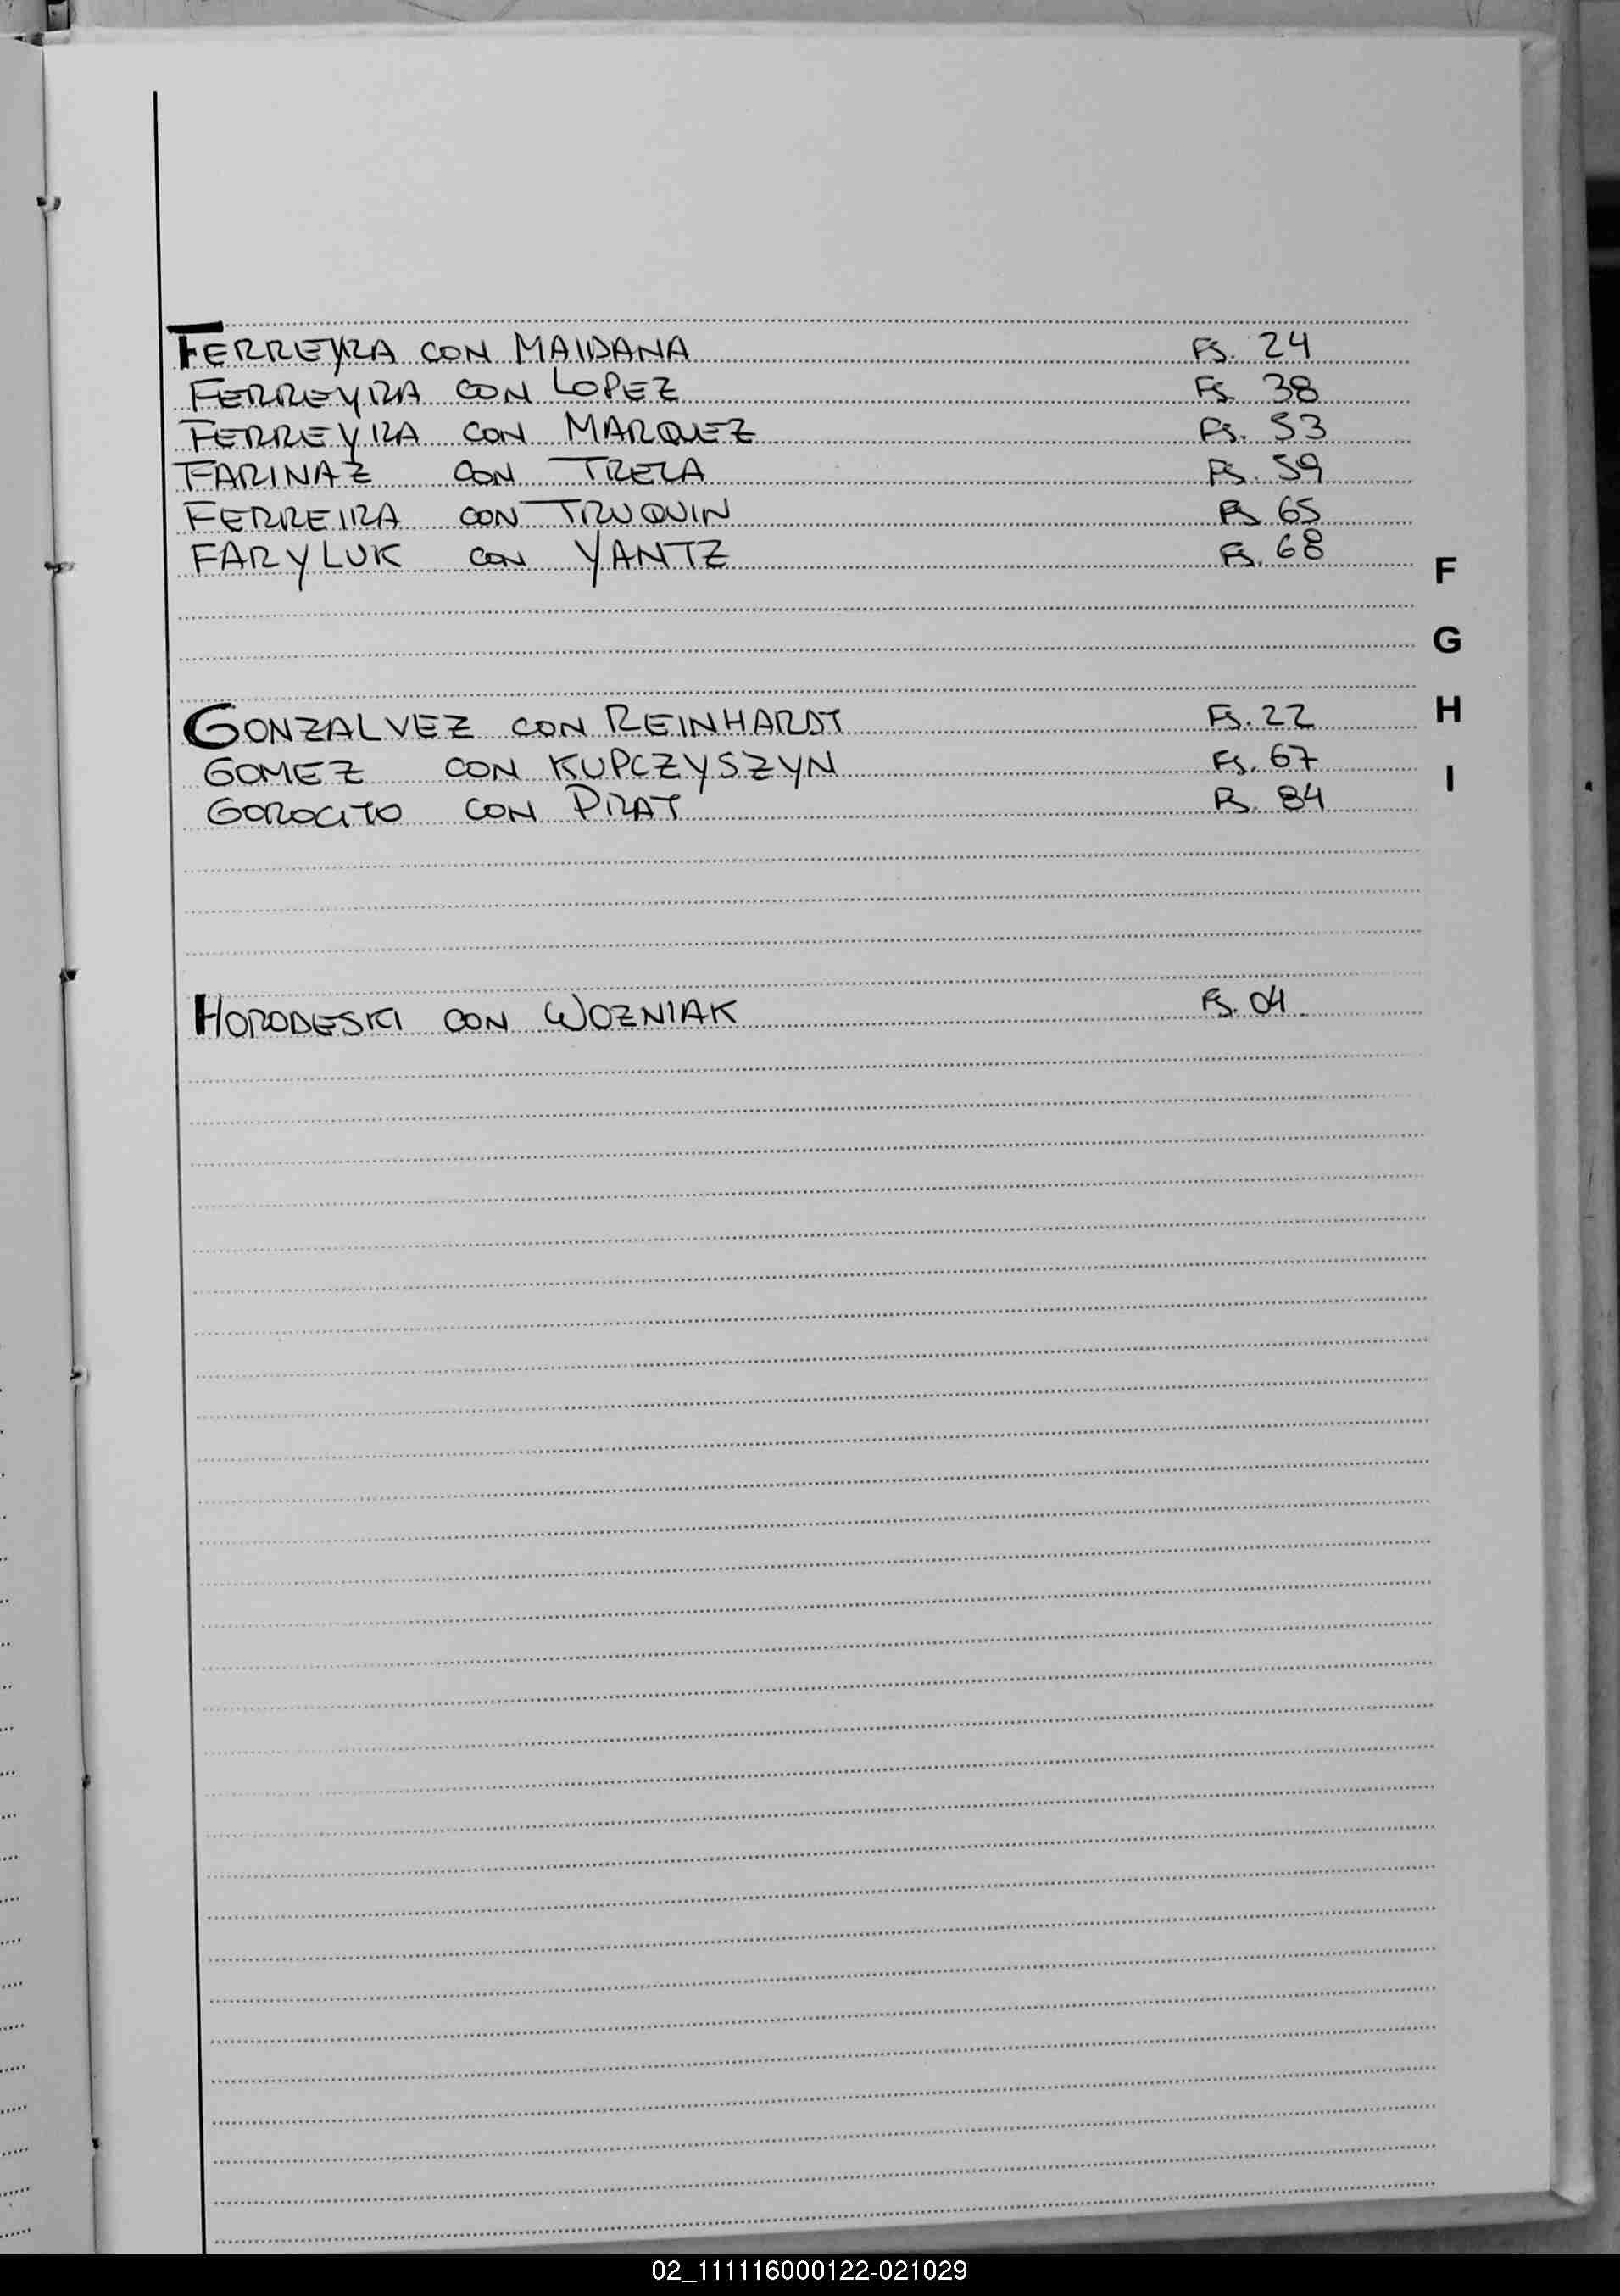 FERREYRA CON MAIDANA Fs. 24
FERREYRA CON LOPEZ Fs. 38
FERREYRA CON MARQUEZ Fs. 53
FARINAZ CON TRELA Fs. 59
FERREIRA CON TRUQUIN Fs 65
FARYLUK CON YANTZ Fs. 68
F
G
GONZALVEZ CON REINHARDT Fs. 22
H
GOMEZ CON KUPCZYSZYN Fs. 67
I
GOROCITO CON PRAT Fs. 84
HORODESKI CON WOZNIAK Fs. 04.
02_111116000122-021029